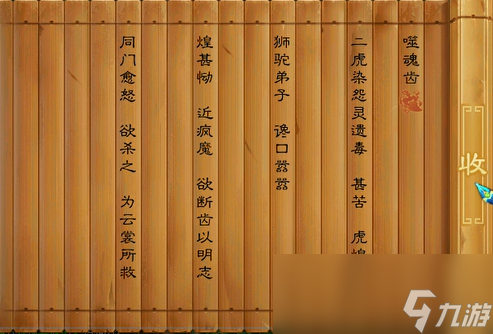 噬魂齿
二虎染怨灵遗毒 甚苦 虎煌
狮驼弟子 谗口嚣嚣
煌甚恸 近疯魔 欲断齿以明志
同门愈怒 欲杀之 为云裳所救
收
九游